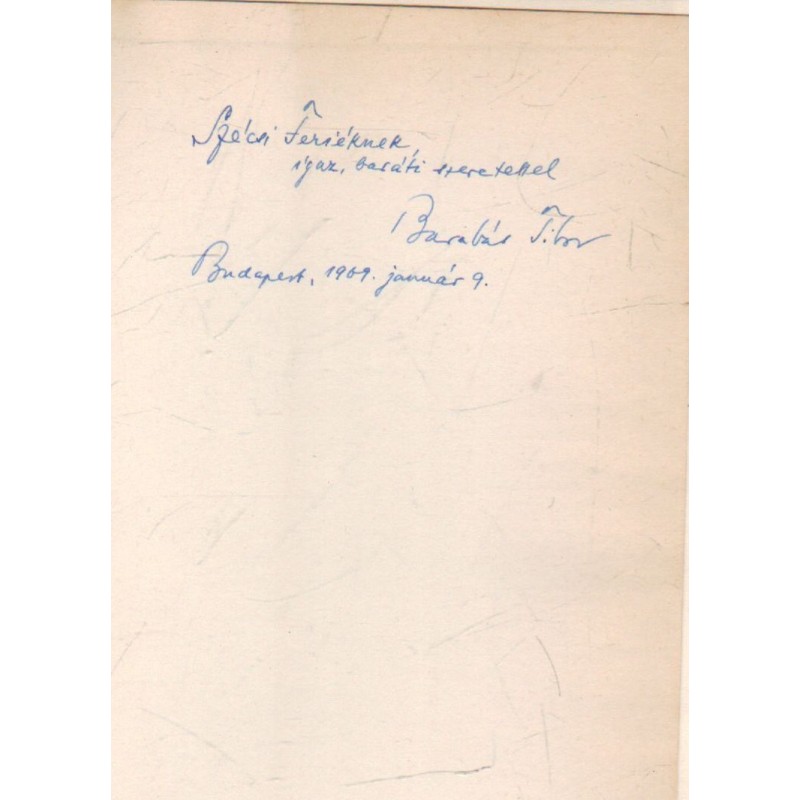 Szécsi Feriéknek,
igaz, baráti szeretettel
Barabás Tibor
Budapest, 1969. január 9.